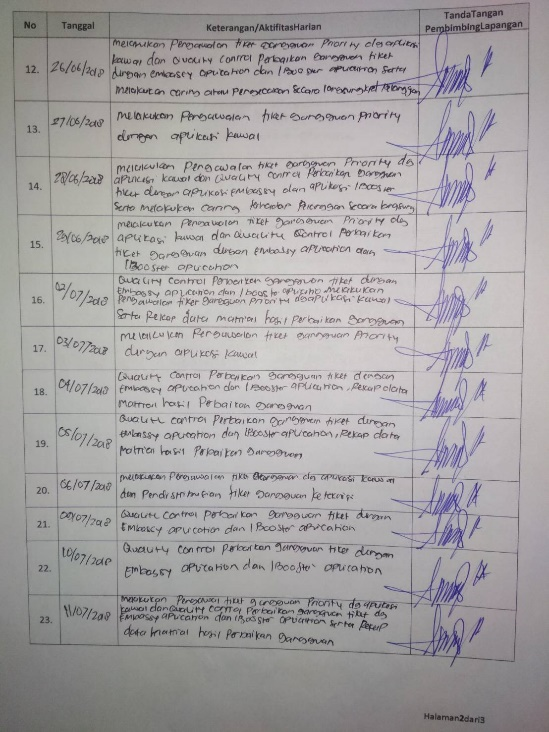 No Tanggal Keterangan/AktifitasHarian TandaTangan
PembimbingLapangan
12. 26/06/2018 melakukan Pengawalan tiket gangguan Priority dg aplikasi
kawal dan Quality Control Perbaikan gangguan tiket
dengan embassy aplication dan IBooster aplication serta
melakukan caring atau pengecekan secara langsung ke pelanggan
13. 27/06/2018 melakukan Pengawalan tiket gangguan Priority
dengan aplikasi kawal
14. 28/06/2018 melakukan Pengawalan tiket gangguan Priority dg
aplikasi kawal dan Quality Control Perbaikan gangguan
tiket dengan aplikasi Embassy dan aplikasi IBooster
serta melakukan Caring terhadap Pelanggan secara langsung
15. 29/06/2018 melakukan Pengawalan tiket gangguan Priority dg
aplikasi kawal dan Quality Control Perbaikan
tiket gangguan dengan embassy aplication dan
IBooster aplication
16. 02/07/2018 Quality Control Perbaikan gangguan tiket dengan
Embassy aplication dan IBooster aplicatio melakukan
Pengawalan tiket gangguan Priority dg aplikasi kawal
serta Rekap data matrial hasil Perbaikan gangguan
17. 03/07/2018 melakukan Pengawalan tiket gangguan Priority
dengan aplikasi kawal
18. 04/07/2018 Quality Control Perbaikan gangguan tiket dengan
Embassy aplication dan IBooster aplication, Rekap data
Matrial hasil Perbaikan gangguan
19. 05/07/2018 Quality control Perbaikan gangguan tiket dengan
embassy aplication dan IBooster aplication, Rekap data
matrial hasil Perbaikan gangguan
20. 06/07/2018 melakukan Pengawalan tiket gangguan dg aplikasi kawal
dan Pendistribusian tiket gangguan ke teknisi
21. 09/07/2018 Quality Control Perbaikan gangguan tiket dengan
Embassy aplication dan IBooster aplication
22. 10/07/2018 Quality Control Perbaikan gangguan tiket dengan
Embassy aplication dan IBooster aplication
23. 11/07/2018 melakukan Pengawal tiket gangguan Priority dg aplikasi
kawal dan Quality Control Perbaikan gangguan tiket dg
Embassy aplication dan IBooster aplication serta Rekap
data matrial hasil Perbaikan gangguan
Halaman2dari3